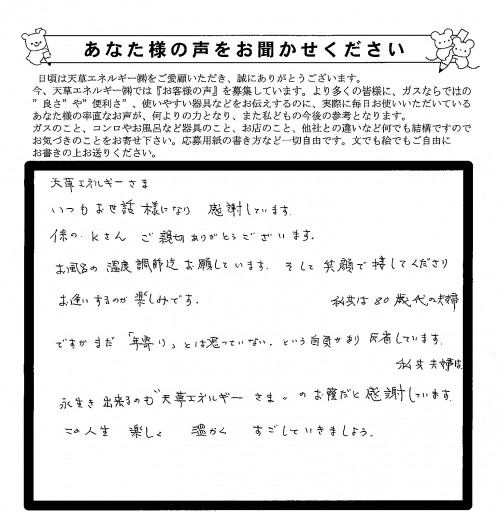 あなた様の声をお聞かせください
日頃は天草エネルギー㈱をご愛顧いただき、誠にありがとうございます。
今、天草エネルギー㈱では『お客様の声』を募集しています。より多くの皆様に、ガスならではの
”良さ”や”便利さ”、使いやすい器具などをお伝えするのに、実際に毎日お使いいただいている
あなた様の率直なお声が、何よりの力となり、また私どもの今後の参考となります。
ガスのこと、コンロやお風呂など器具のこと、お店のこと、他社との違いなど何でも結構ですので
お気づきのことをお寄せ下さい。応募用紙の書き方など一切自由です。文でも絵でもご自由に
お書きの上お送りください。
天草エネルギーさま
いつもお世話様になり 感謝しています.
係の.Kさん ご親切ありがとうございます.
お風呂の温度調節迄お願しています. そして笑顔で接してくださり
お逢いするのが楽しみです. 私共は80歳代の夫婦
ですがまだ「年寄り」とは思っていない.という自負があり 反省しています.
私共夫婦は
永生き出来るのも〝天草エネルギーさま〟のお蔭だと感謝しています.
この人生 楽しく 温かく すごしていきましょう.